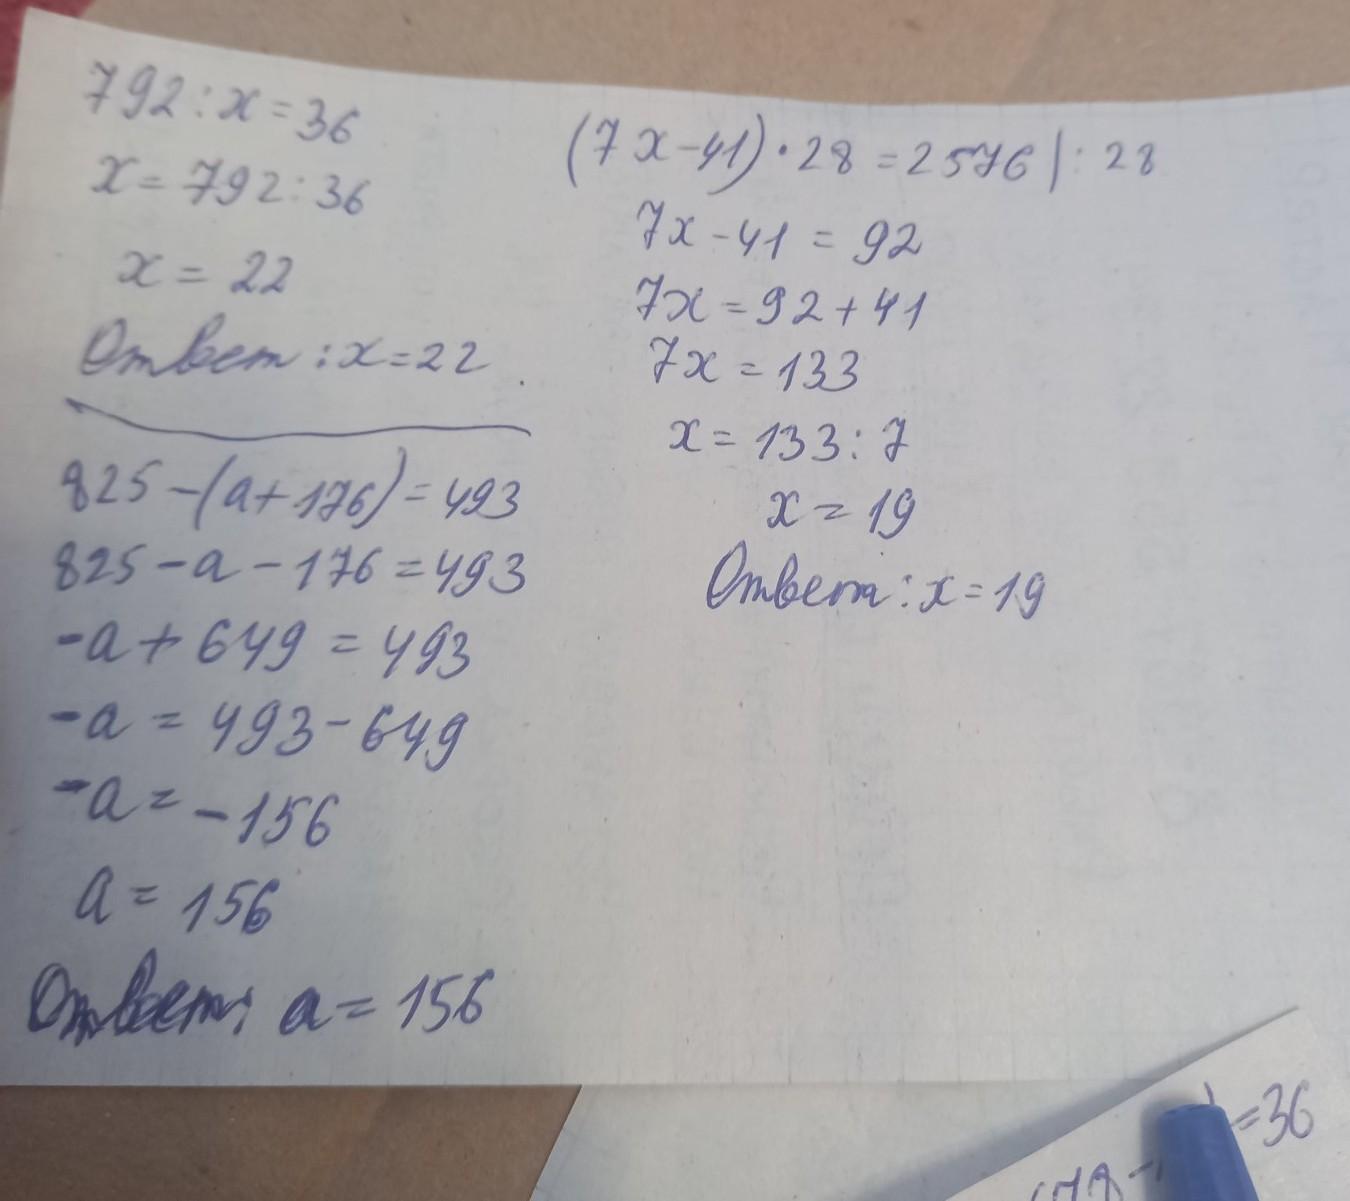 792 : x = 36
x = 792 : 36
x = 22
Ответ : x = 22 .
825 - (a + 176) = 493
825 - a - 176 = 493
-a + 649 = 493
-a = 493 - 649
-a = -156
a = 156
Ответ: a = 156
(7x - 41) · 28 = 2576 | : 28
7x - 41 = 92
7x = 92 + 41
7x = 133
x = 133 : 7
x = 19
Ответ : x = 19
=36